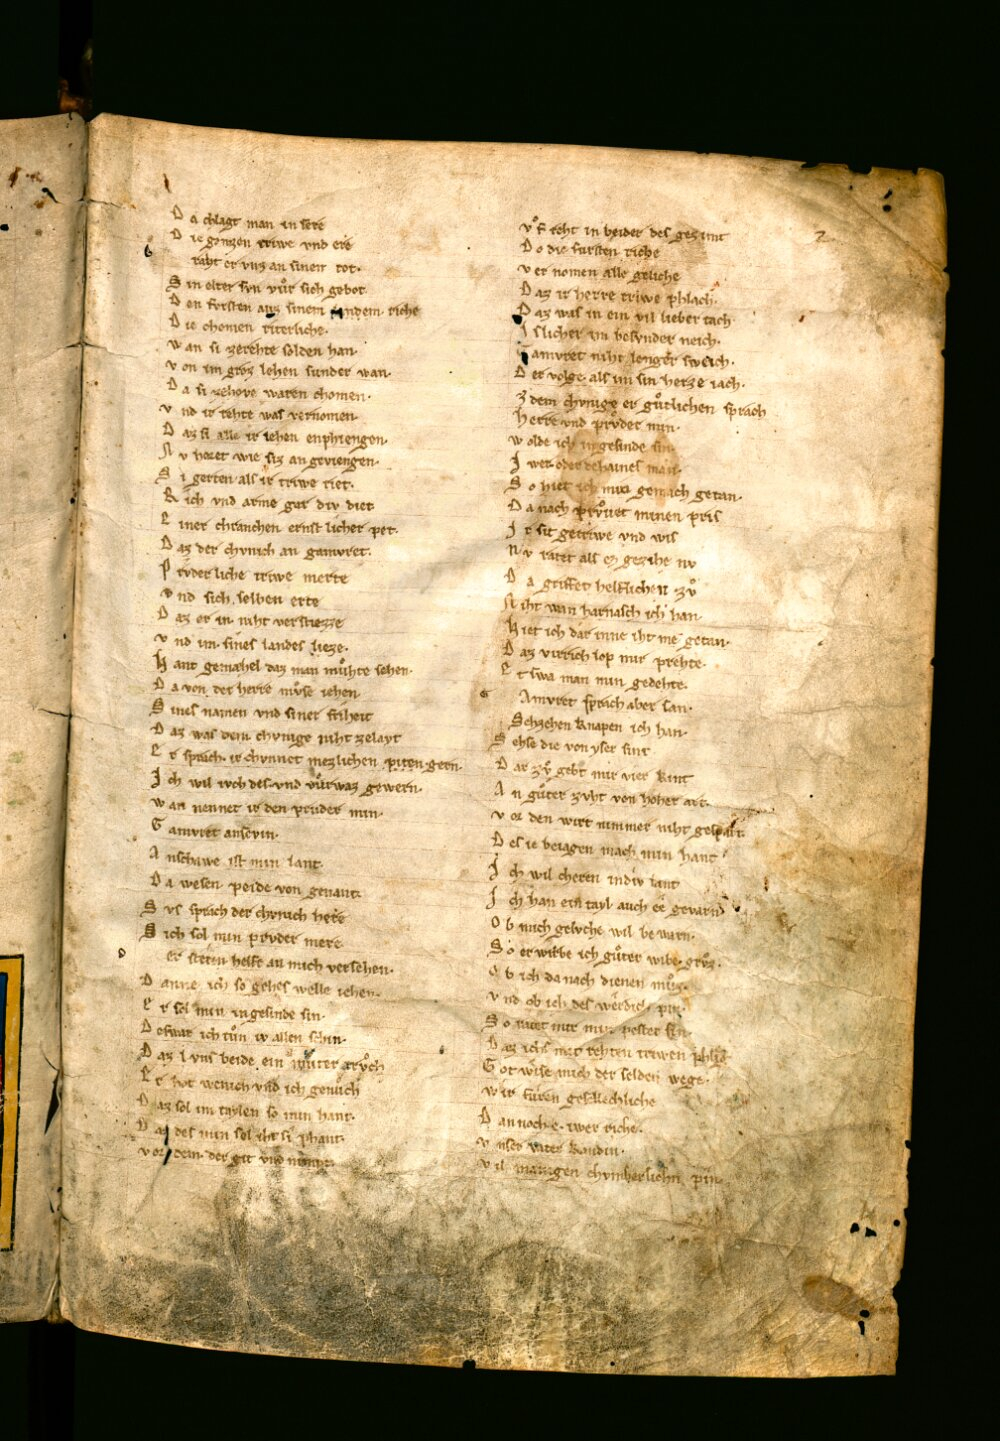 D a chlagt man in sere
D ie ganzen triwe vnd ere
raht er vnz an sinen tot.
S in elter svn vu̍r sich gebot
D en forsten auz sinem landem riche
D ie chomen riterliche.
w an si zerehte solden han.
v on im groz lehen sunder wan.
D a si zehove waren chomen.
v nd ir rehte was vernomen.
D az si alle ir lehen enphiengen.
N v horet wie siz an geviengen.
S i gerten als ir triwe riet.
R ich vnd arme gar div diet
E iner chranchen ernst licher pet.
D az der chvnich an gamvret.
P rvderliche triwe merte
v nd sich selben erte
D az er in niht verstiezze
v nd im sines landes lieze.
H ant gemahel daz man mohte sehen.
D a von der herre mvse iehen
S ines namen vnd siner friheit
D az was dem chvnige niht zelayt
E r sprach ir chvnnet mezlichen piten gern.
I ch wil ivch des vnd vu̍rwaz gewern.
w an nennet ir den prvder min.
G amvret anseuin.
A nschawe ist min lant.
D a wesen peide von genant.
S vs sprach der chvnich here
S ich sol min prvder mere
er stetin helfe an mich versehen.
D anne ich so gehes welle iehen.
E r sol min ingesinde sin.
D eswar ich tu̍n iv allen schin.
D az l vns beide ein mu̍ter truch
E r hot wenich vnd ich genu̍ch
D az sol im taylen so min hant.
D az des min sol iht si phant.
v or dem der git vnd nimpt.
v̊f reht in beider des gezimt
D o die fursten riche
v er nomen alle geliche
D az ir herre triwe phlach.
D az was in ein vil lieber tach.
I slicher im besvnder neich.
G amvret niht lenger sweich.
D er volge als im sin herze iach.
Z dem chvnige er gu̍tlichen sprach
herre vnd prvder min.
w olde ich ingesinde sin.
I wer oder dehaines man.
S o hiet ich min gemach getan.
D a nach prvuet minen pris
I r sit getriwe vnd wis
N v ratet als ez gezihe nv
D a griffet helflichen zv̊
N iht wan harnasch ich han.
H iet ich dar inne iht me getan.
D az virrich lop mir prehte.
E t swa man min gedehte.
G Amvret sprach aber san.
Sehzehen knapen ich han.
S ehse die von yser sint.
D ar zv̊ gebt mir vier kint
A n gu̍ter zvht von hoher art.
v or den wirt nimmer niht gespart.
D es ie beiagen mach min hant
I ch wil cheren indiv lant
I ch han ein tayl auch ee gevarn
O b mich gelvche wil be warn.
S o erwirbe ich gu̍ter wibe gru̍z.
O b ich da nach dienen mu̍z.
v nd ob ich des werdich pin.
S o ratet mir min pester sin.
D az ichs mit rehten triwen phlig
G ot wise mich der selden wege.
w ir furen geslaechliche
D annoch e. iwer riche.
v nser vater Kandin.
v il manigen chvmberlichn pin.